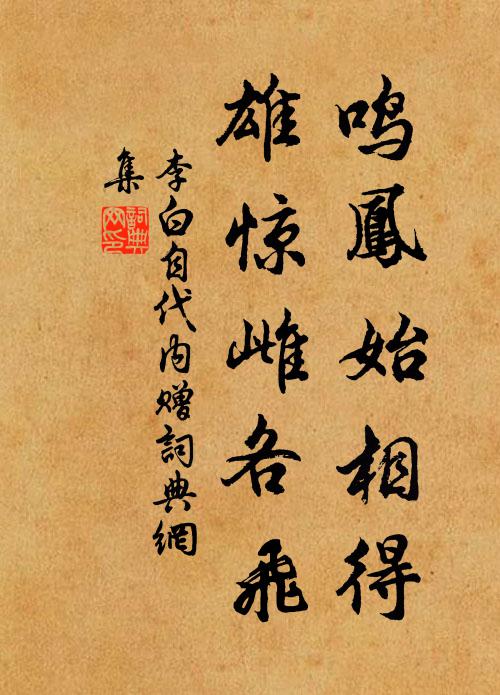 鸣鳳始相得
雄惊雌各飛
李白自代内赠詞典網
集
詞典
网印